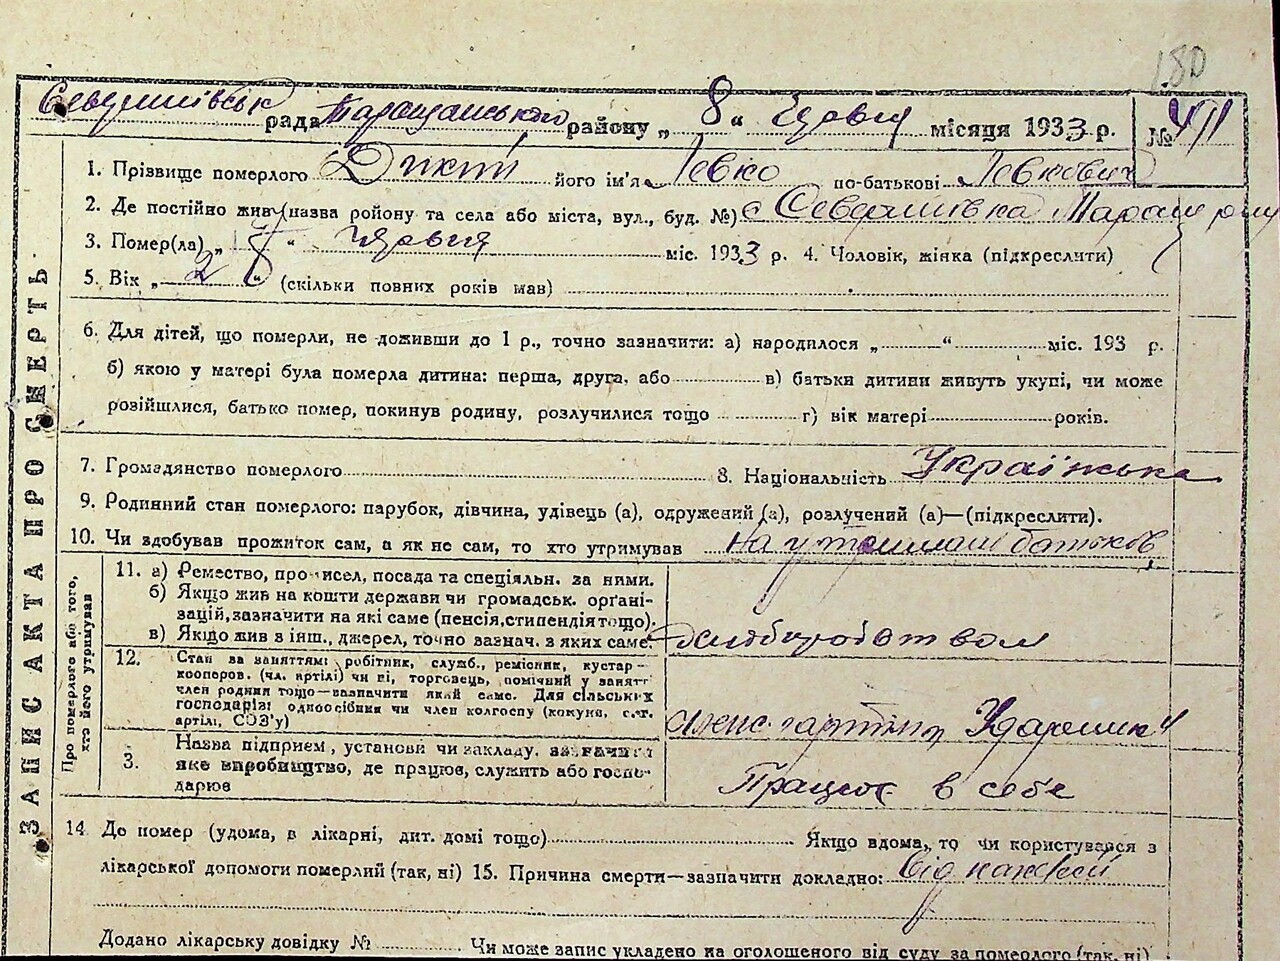 180
Северинівськ рада Таращанського району „ 8 “ червня місяця 1933 р. №
1. Прізвище померлого Дикий його ім'я Левко по-батькові Левкович
2. Де постійно жив (назва ройону та села або міста, вул., буд. №) с Северинівка Таращ
3. Помер(ла) „ “ червня міс. 1933 р. 4. Чоловік, жінка (підкреслити)
5. Вік „ 2 “ (скільки повних років мав)
6. Для дітей, що померли, не доживши до 1 р., точно зазначити: а) народилося „ “ міс. 193 р.
б) якою у матері була померла дитина: перша, друга, або в) батьки дитини живуть укупі, чи може
розійшлися, батько помер, покинув родину, розлучилися тощо г) вік матері років.
7. Громадянство померлого 8. Національність Українська
9. Родинний стан померлого: парубок, дівчина, удівець (а), одружений (а), розлучений (а)—(підкреслити).
10. Чи здобував прожиток сам, а як не сам, то хто утримував на утриман батьков
ЗАПИС АКТА ПРО СМЕРТЬ
Про померлого або того,
хто його утримував
11. а) Ремество, промисел, посада та спеціяльн. за ними.
б) Якщо жив на кошти держави чи громадськ. орґані-
зацій, зазначити на які саме (пенсія, стипендія тощо).
в) Якщо жив з інш., джерел, точно зазнач. з яких саме. хліборобством
12. Стан за заняттям: робітник, служб., ремісник, кустар—
кооперов. (чл. артілі) чи ні, торговець, помічний у занятт
член родини тощо—зазначити який саме. Для сільських
господарів: одноосібник чи член колгоспу (комуни, с.-г.
артілі, СОЗ'у) артіли Ударник
3. Назва підприєм, установи чи закладу. зазначити
яке виробництво, де працює, служить або госпо-
дарює Працює в себе
14 До помер (удома, в лікарні, дит. домі тощо) Якщо вдома, то чи користувався з
лікарської допомоги померлий (так, ні) 15. Причина смерти—зазначити докладно: Від
Додано лікарську довідку № Чи може запис укладено на оголошеного від суду за померлого (так, ні)